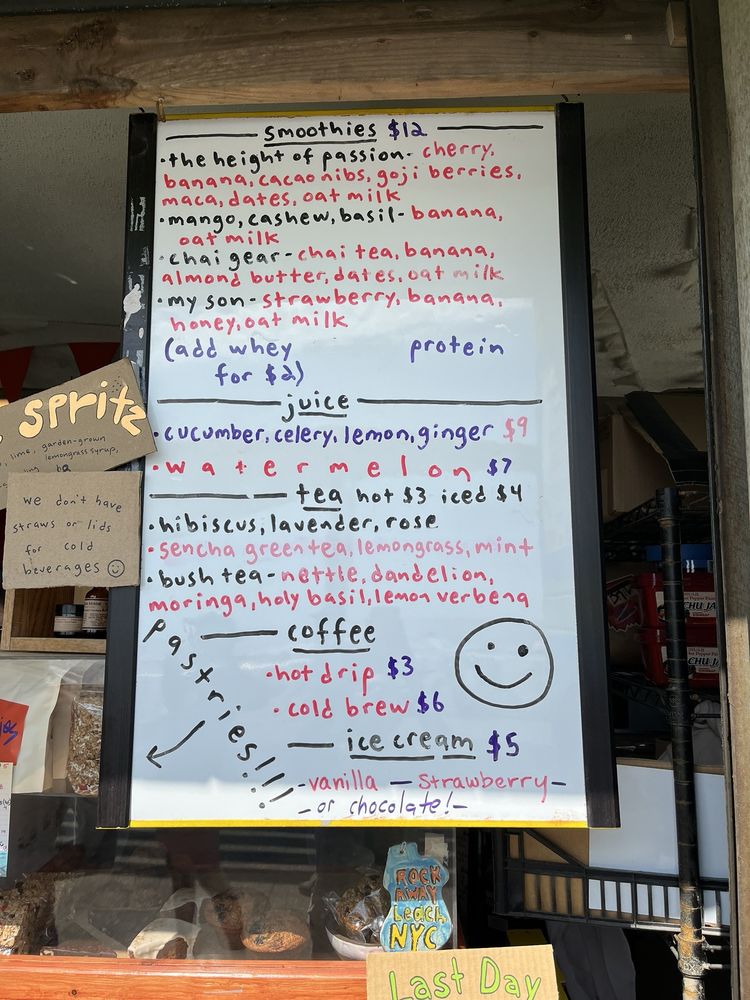 smoothies $12
·the height of passion- cherry,
banana, cacao nibs, goji berries,
maca, dates, oat milk
·mango, cashew, basil- banana,
oat milk
·chai gear- chai tea, banana,
almond butter, dates, oat milk
·my son- strawberry, banana,
honey, oat milk
(add whey protein
for $2)
juice
·cucumber, celery, lemon, ginger $9
·watermelon $7
tea hot $3 iced $4
·hibiscus, lavender, rose
·sencha green tea, lemongrass, mint
·bush tea- nettle, dandelion,
moringa, holy basil, lemon verbena
coffee
·hot drip $3
·cold brew $6
ice cream $5
-vanilla - strawberry-
-or chocolate!-
pastries!!!
spritz
lime, garden-grown
lemongrass syrup,
we don't have
straws or lids
for cold
beverages
ROCK
AWAY
Beach
NYC
Last Day